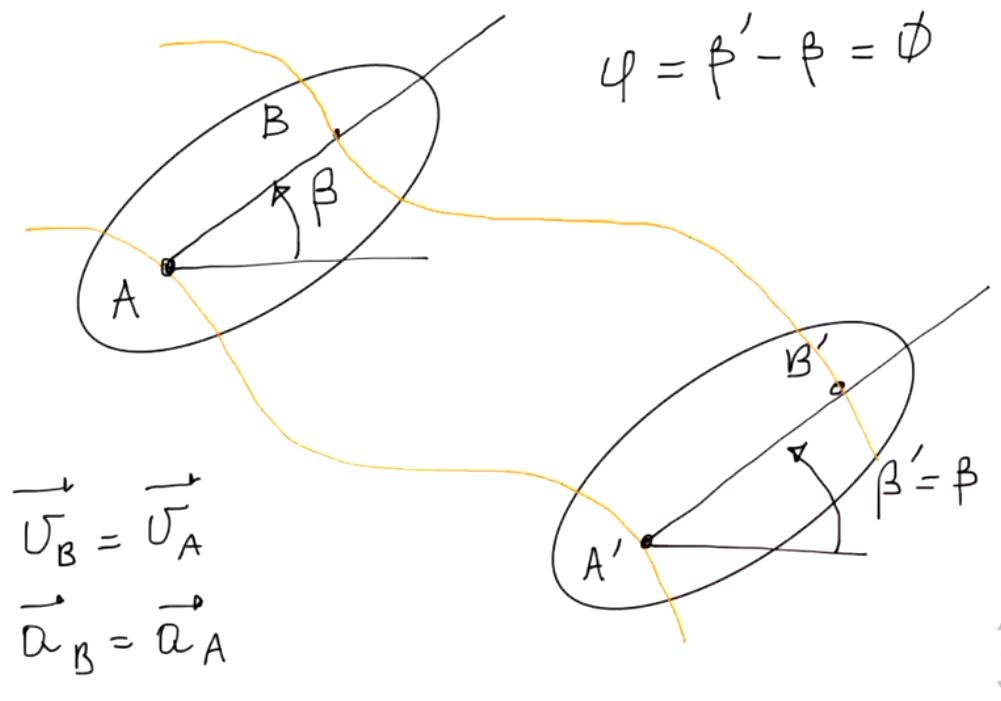 φ = β′ - β = ∅
B
β
A
B′
β′ = β
A′
v⃗_B = v⃗_A
a⃗_B = a⃗_A